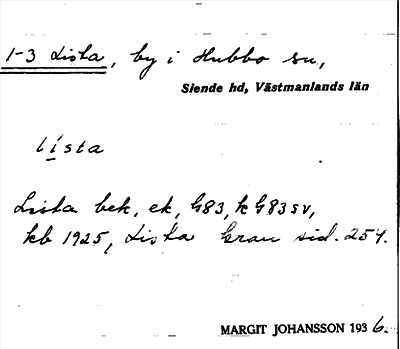 1-3 Lista, by i Hubbo sn,
Siende hd, Västmanlands län
lista
Lista bek, ek, G83, k G83 sv,
kb 1925, Lista Gran sid. 254.
MARGIT JOHANSSON 1936.